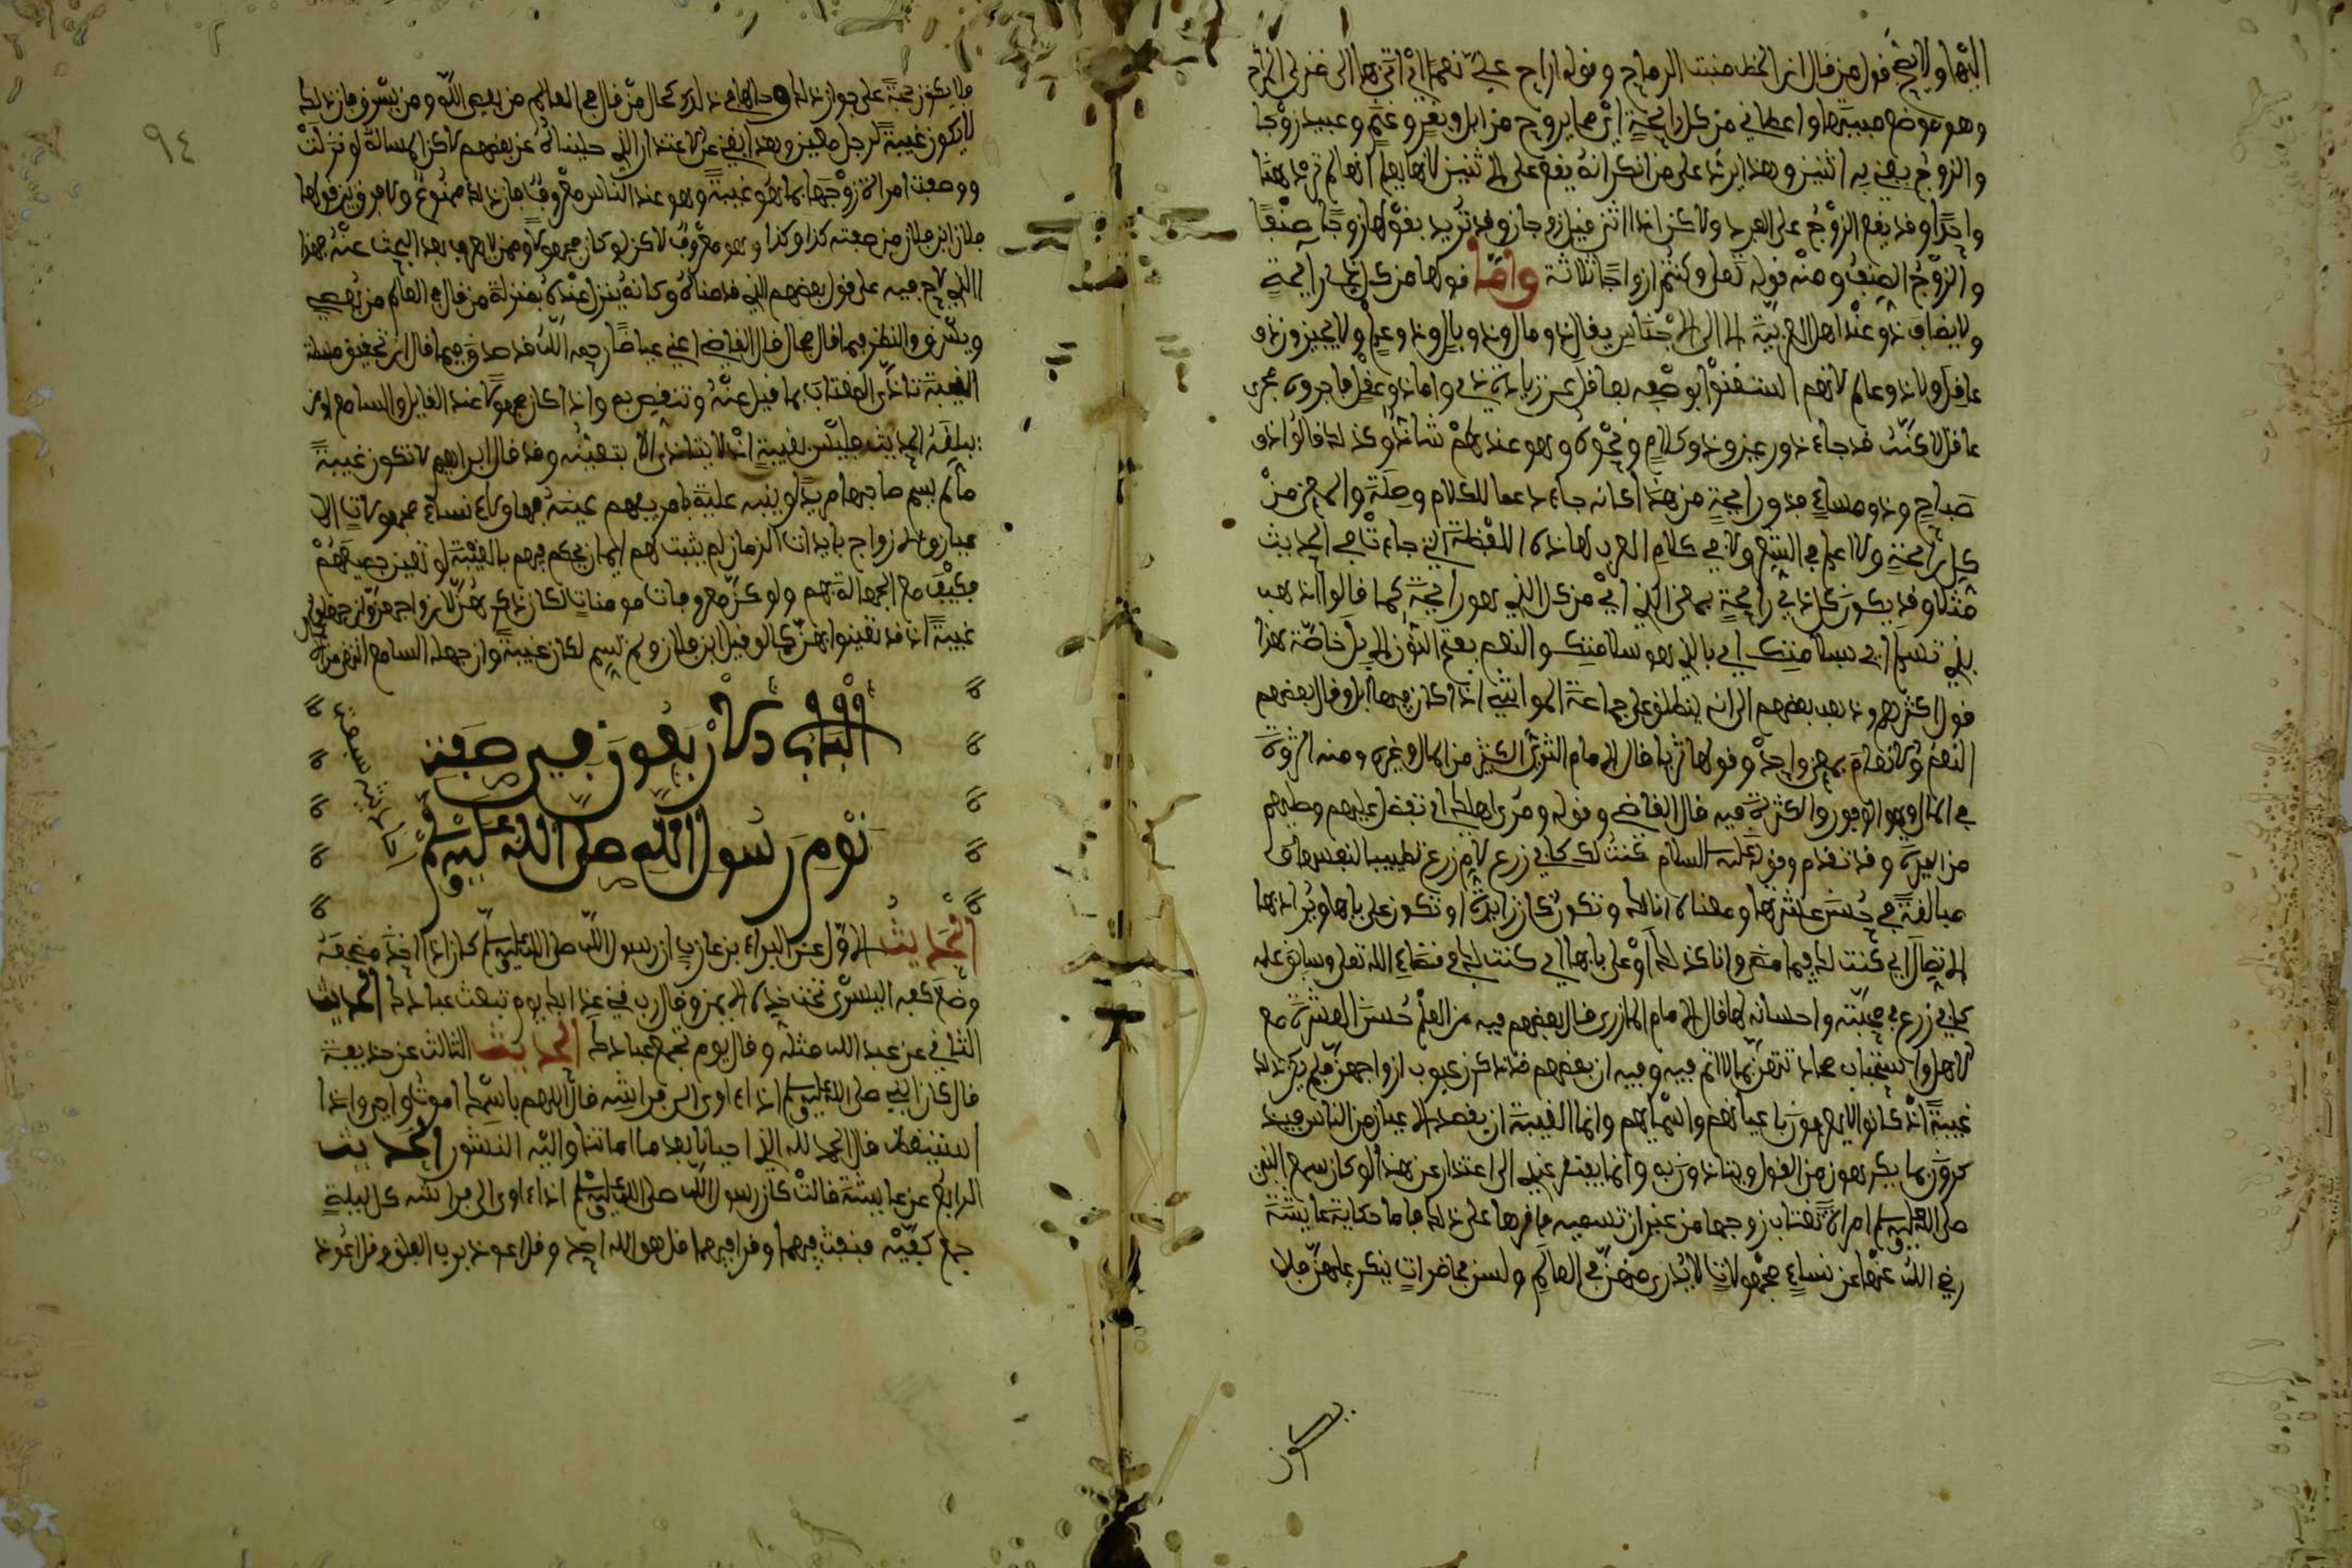 اليها ولا يصح قول من قال ان الخط منبت الرماح وقوله اراح علي نعما اي اتى بها الى منزلي المراح
وهو موضع مبيتها واعطاني من كل رائحة اي مما يروح من ابل وبقر وغنم وعبيد زوجا
والزوج يعني به اثنين وهذا يرد على من انكر انه يقع على الاثنين لانها لم ترد هنا
واحدا وقد يقع الزوج على الفرد ولاكن اذا اثنين فيل زوجان وقد تريد بقولها زوجا صنفا
والزوج الصنف ومنه قوله تعلى وكنتم ازواجا ثلاثة واما قولها من كل ذي رائحة
ولا يضاف ذو عند اهل العربية الا الى الاجناس يقال ذو مال وذو بال وذو وعلم ولا يجيزون ذو
عاقل ولا ذو عالم لانهم استغنوا بوصفه بعاقل عن زيادة ذي واما ذو عقل
عاقل لاكنه قد جاء ذو رعين وذو كلاع ونحوه وهو عندهم شاذ وكذلك قالوا ذو
صباح وذو مساء فذو رائحة من هذا كانه جاء دعما للكلام وصلة والمعنى من
كل رائحة ولا اعلم في الشعر ولا في كلام العرب لهاذه اللفظة التي جاءت في الحديث
مثلا وقد يكون كل ذي رائحة بمعنى الذي اي من كل الذي هو رائحة كما قالوا اذهب
بذي تسلم اي بسلامتك اي بالذي هو سلامتك والنعم بفتح النون الابل خاصة هذا
قول اكثرهم وذهب بعضهم الى انه ينطلق على جماعة المواشي اذا كان فيها ابل وقال بعضهم
النعم والانعام بمعنى واحد وقولها ثريا قال الامام الثري الكثير من المال وغيره ومنه الثروة
في المال وهو الوفور والكثرة فيه قال القاضي وقوله ومري اهلك اي تفضلي عليهم وصليهم
من الميرة وقد تقدم وقوله عليه السلام كنت لك كابي زرع لام زرع تطييبا لنفسها و
مبالغة في حسن عشرتها ومعناه انا لك وتكون كان زايدة او تكون على بابها ويراد بها
الاتصال اي كنت لك فيما مضى وانا كذلك او على بابها اي كنت لك في قضاء الله تعلى وسابق علمه
كابي زرع في محبته واحسانه لها قال الامام المازري قال بعضهم فيه من العلم حسن العشرة مع
الاهل واستحباب محادثتهن بما لا اثم فيه وفيه ان بعضهم قد ذكرن عيوب ازواجهن فلم يكن ذلك
غيبة اذ كانوا لا يعرفون باعيانهم واسمائهم وانما الغيبة ان يقصد الاعيان من الناس فيذ
كرون بما يكرهون من القول ويتاذون به وانما يفتقر عندي الى اعتذار عن هذا لو كان سمع النبي
صلى الله عليه وسلم امراة تغتاب زوجها من غير ان تسميه فاقرها على ذلك فاما حكاية عايشة
رضي الله عنها عن نساء مجهولات لا يدرى من هن في العالم ولسن بحاضرات ينكر عليهن فلا
يكون
٩٤
ما يكون حجة على جواز ذلك وحالها في ذلك كحال من قال في العالم من يعصي الله ومن يسرق فان ذلك
لا يكون غيبة لرجل معين وهذا يغني عن الاعتذار الذي حكيناه عن بعضهم لاكن المسالة لو نزلت
ووصفت امراة زوجها بما هو غيبة وهو عند الناس معروف فان ذلك ممنوع ولا فرق بين قولها
فلان ابن فلان من صفته كذا وكذا وهو معروف لاكن لو كان مجهولا وممن لا يعرف بعد البحث عنه فهذا
الذي لا حرج فيه على قول بعضهم الذي قدمناه وكانه ينزل عنده بمنزلة من قال في العالم من يعصي
ويسرق وللنظر فيما قال مجال قال القاضي اعني عياضا رحمه الله قد صدق فيما قال ان تحقيق مسئلة
الغيبة تاذي المغتاب بما قيل عنه وتنقيص به واذا كان مجهولا عند القايل والسامع او من
يبلغه الحديث فليس بغيبة اذ لا يتاذى الا بتعينه وقد قال ابراهيم لا تكون غيبة
ما لم يسم صاحبها يريد او ينبه عليه بامر يفهم عينه فيها وهؤلاء نساء مجهولات الا
عيان والازواج بايدات الزمان لم يثبت لهم ايمان يحكم فيهم بالغيبة لو تعين جميعهم
فكيف مع الجهالة بهم ولو كن معروفات مومنات لكان ذكرهن لازواجهن وان جهلوا
غيبة اذ قد تعينوا بهن كما لو قيل ابن فلان ولم يسم لكان غيبة وان جهله السامع
الباب الاربعون في صفة
نوم رسول الله صلى الله عليه وسلم
الحديث الاول عن البراء بن عازب ان رسول الله صلى الله عليه وسلم كان اذا اخذ مضجعه
وضع كفه اليمنى تحت خده الايمن وقال رب قني عذابك يوم تبعث عبادك الحديث
الثاني عن عبد الله مثله وقال يوم تجمع عبادك الحديث الثالث عن حذيفة
قال كان النبي صلى الله عليه وسلم اذا اوى الى فراشه قال اللهم باسمك اموت واحيى واذا
استيقظ قال الحمد لله الذي احيانا بعد ما اماتنا واليه النشور الحديث
الرابع عن عايشة قالت كان رسول الله صلى الله عليه وسلم اذا اوى الى فراشه كل ليلة
جمع كفيه فنفث فيهما وقرا فيهما قل هو الله احد وقل اعوذ برب الفلق وقل اعوذ